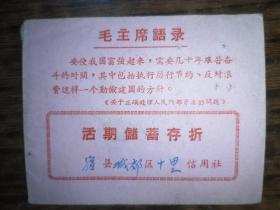 毛主席語录
要使我国富強起来，需要几十年艰苦奋
斗的时間，其中包括执行厉行节約、反对浪
費这样一个勤儉建国的方針。
《关于正确处理人民內部矛盾的問題》
活期儲蓄存折
县城郊区十里信用社